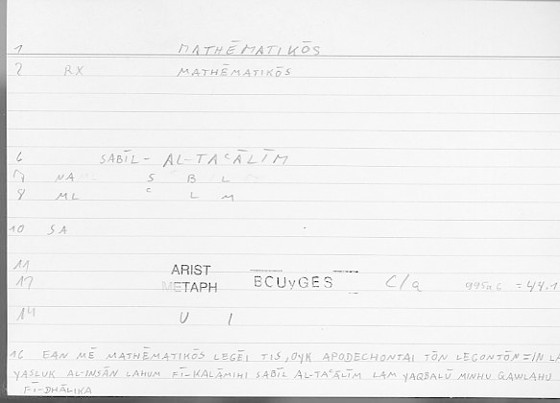 1 MATHĒMATIKŌS
2 RX MATHĒMATIKŌS
6 SABĪL- AL-TAʿĀLĪM
7 NA S B L
8 ML ʿ L M
10 SA
11 ARIST
12 METAPH BCUyGES C/a 995a6 = 44.1
14 U I
16 EAN MĒ MATHĒMATIKŌS LEGĒI TIS, OYK APODECHONTAI TŌN LEGONTŌN = IN LA
YASLUK AL-INSĀN LAHUM FĪ-KALĀMIHI SABĪL AL-TAʿĀLĪM LAM YAQBALŪ MINHU QAWLAHU
FĪ-DHĀLIKA